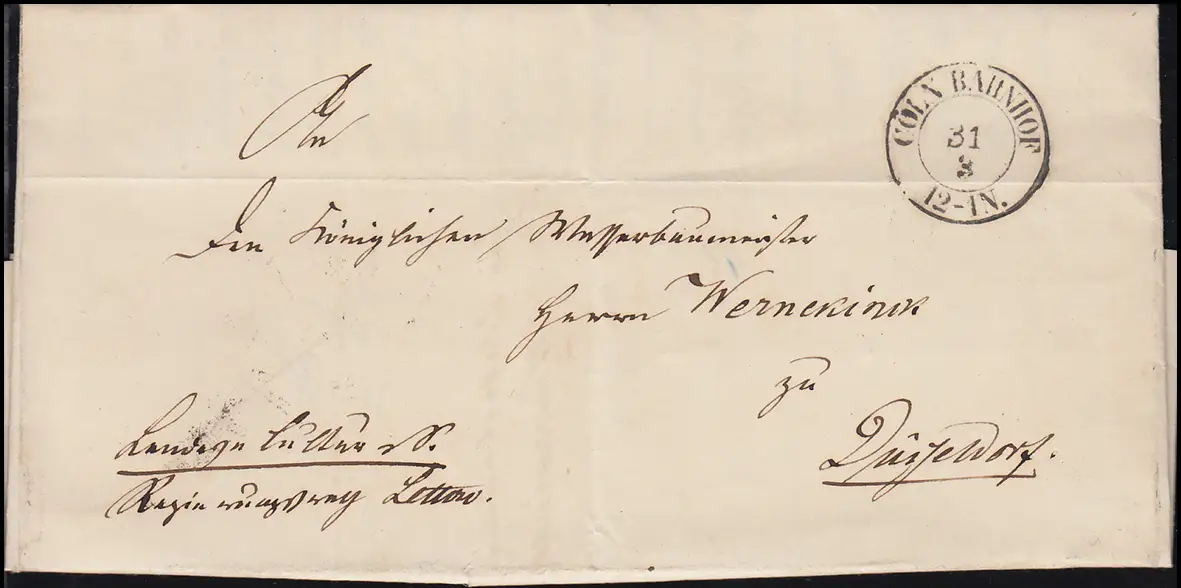 An
CÖLN BAHNHOF
31
8
12-1N.
den Königlichen Wasserbaumeister
Herrn Wernekinck
zu
Düsseldorf.
Landes Cultur S.
Regierungsrath Lettow.